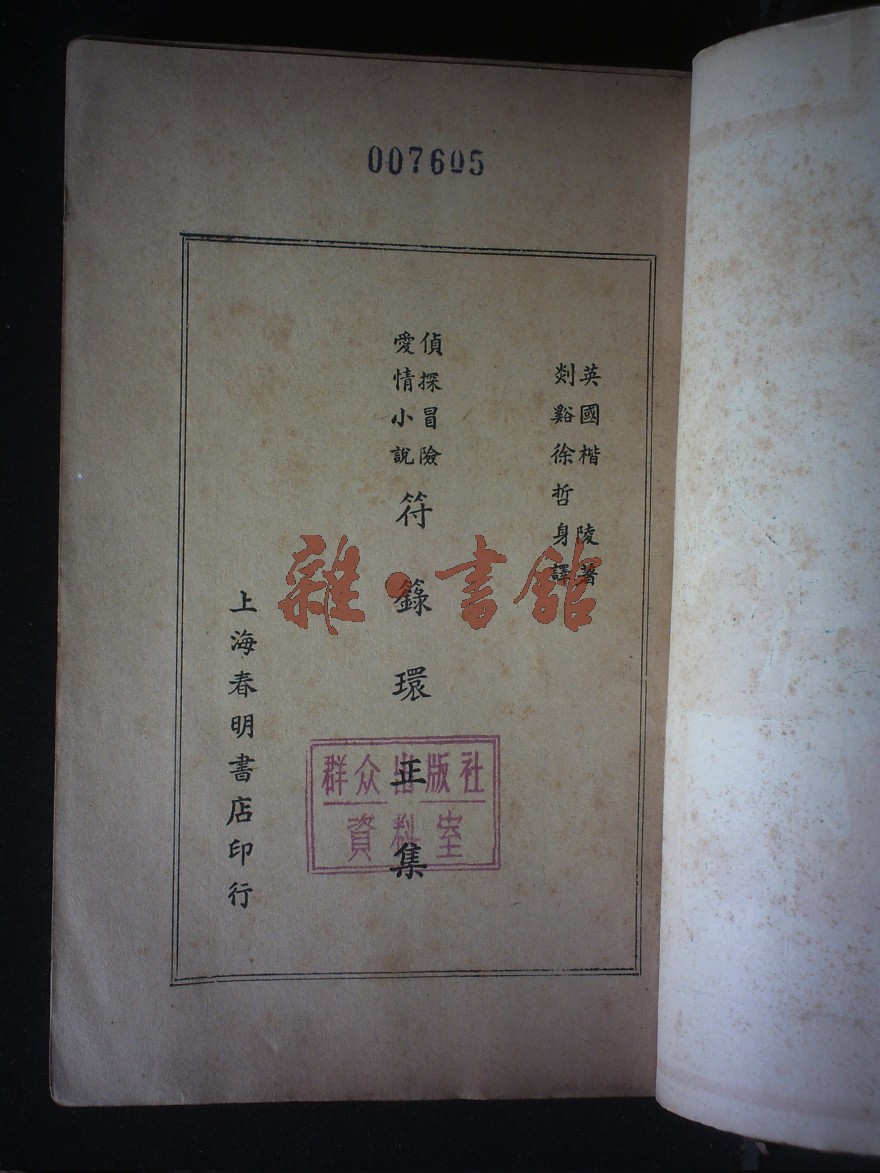 007605
英國楷陵著
剡谿徐哲身譯
偵探冒險
愛情小說
符籙環正集
上海春明書店印行
群众出版社
資料室
雜·書館